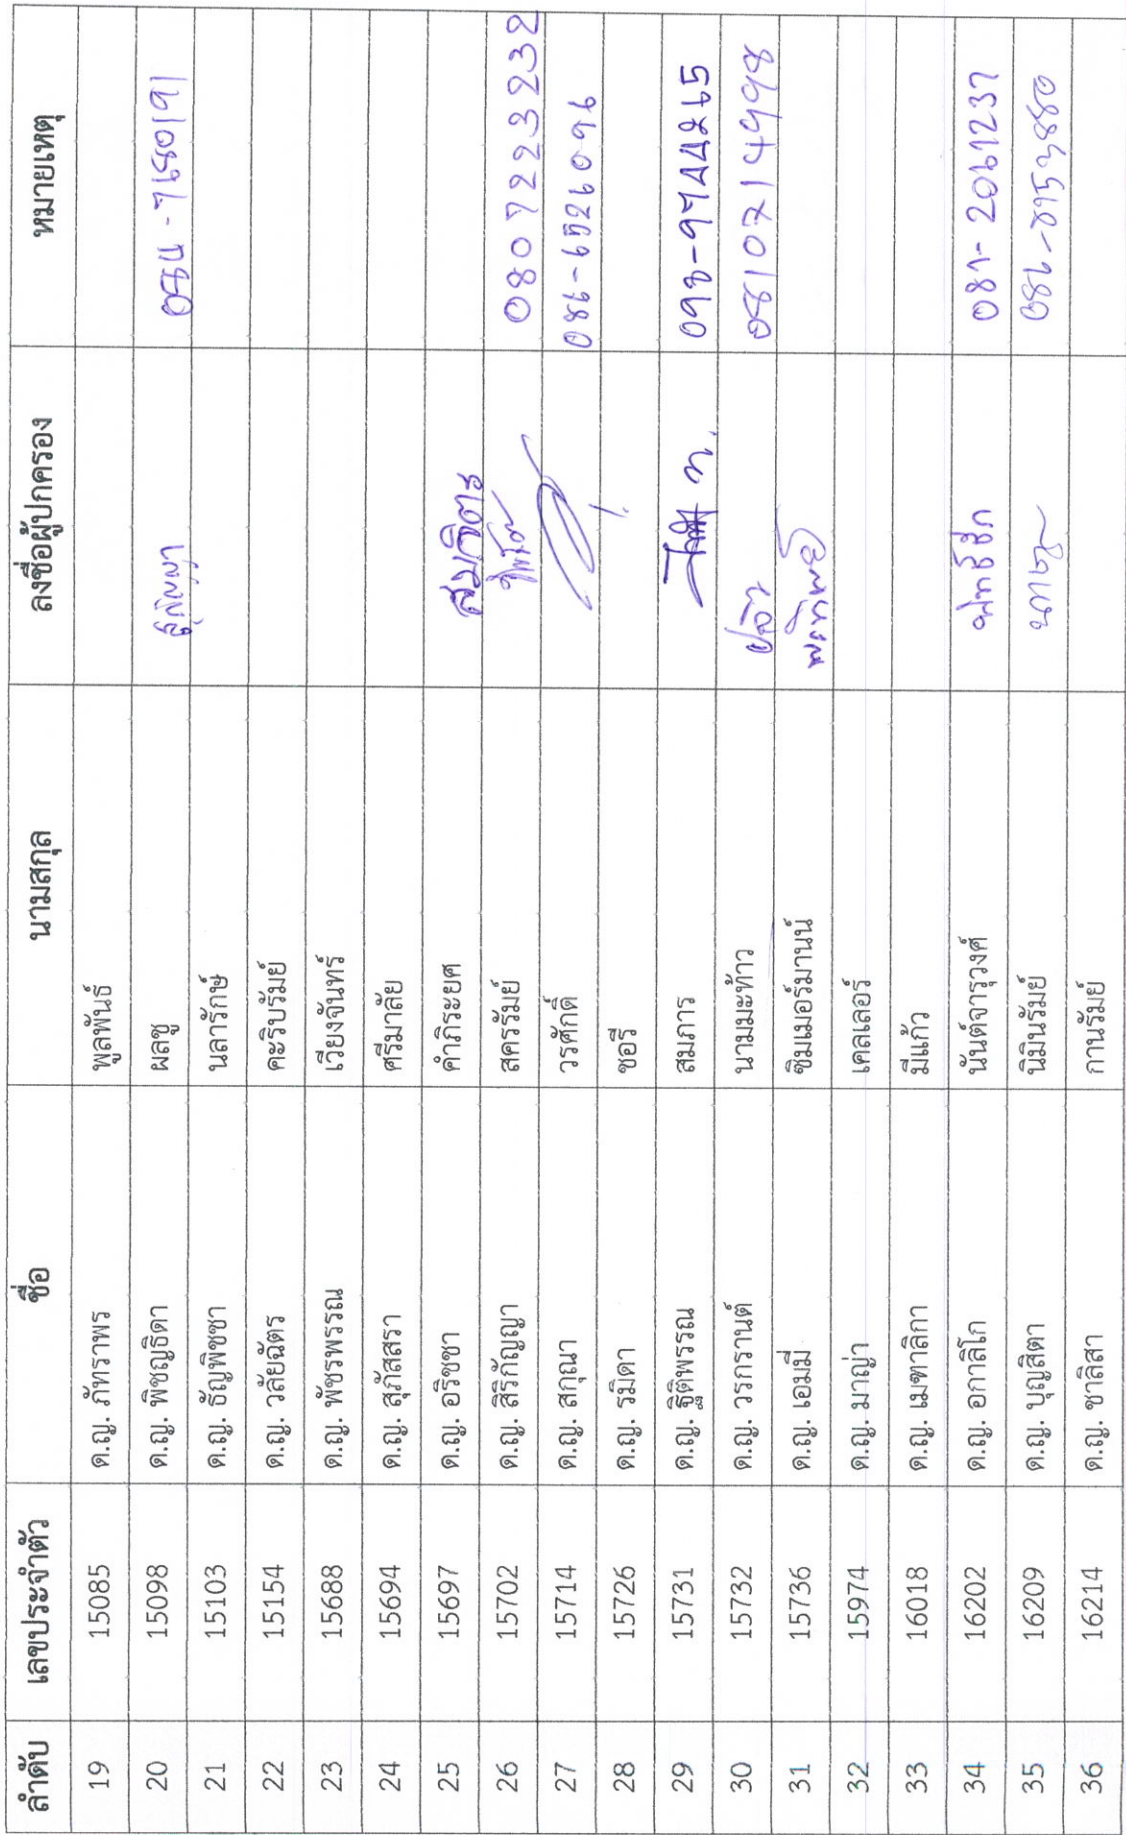 ลำดับ เลขประจำตัว ชื่อ นามสกุล ลงชื่อผู้ปกครอง หมายเหตุ
19 15085 ด.ญ. ภัทราพร พูลพันธ์
20 15098 ด.ญ. พิชญธิดา ผลชู
21 15103 ด.ญ. ธัญพิชชา นลารักษ์
22 15154 ด.ญ. วลัยฉัตร คะริบรัมย์
23 15688 ด.ญ. พัชรพรรณ เวียงจันทร์
24 15694 ด.ญ. สุภัสสรา ศรีมาลัย
25 15697 ด.ญ. อริชชา คำภิระยศ สมจิตร
26 15702 ด.ญ. สิริกัญญา สครรัมย์ 0807223232
27 15714 ด.ญ. สกุณา วรศักดิ์ 086-6526096
28 15726 ด.ญ. รมิดา ชอรี
29 15731 ด.ญ. ฐิติพรรณ สมภาร
30 15732 ด.ญ. วรกรานต์ นามมะท้าว
31 15736 ด.ญ. เอมมี่ ซิมเมอร์มานน์ พรทิพย์
32 15974 ด.ญ. มาญ่า เคลเลอร์
33 16018 ด.ญ. เมฑาลิกา มีแก้ว
34 16202 ด.ญ. อกาลิโก นันต์จารุวงศ์ 081-2061237
35 16209 ด.ญ. บุญสิตา นิมินรัมย์
36 16214 ด.ญ. ชาลิสา กานรัมย์